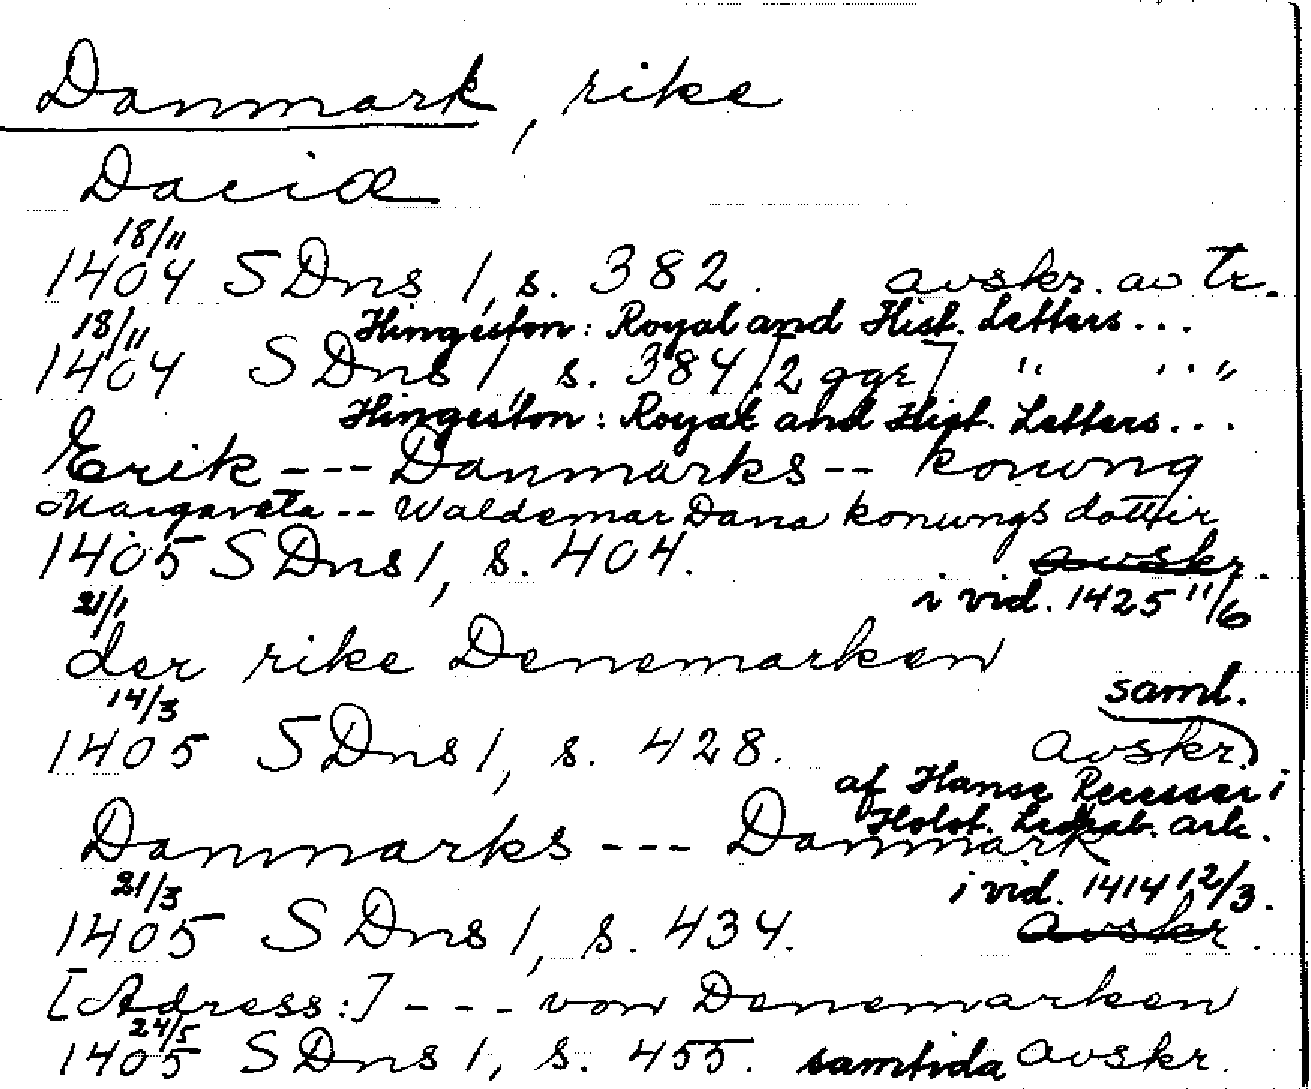 Danmark, rike
Daciæ
18/11
1404 SDns 1, s. 382. avskr. av tr.
Hingeston: Royal and Hist. Letters...
18/11
1404 SDns 1, s. 384 [2 ggr] " " "
Hingeston: Royal and Hist. Letters...
Erik --- Danmarks -- konung
Margareta -- Waldemar Dana konungs dottir
1405 SDns 1, s. 404. avskr.
21/1 i vid. 1425 11/6
der rike Denemarken
14/3 saml.
1405 SDns 1, s. 428. avskr.
af Hanse Recesser i
Danmarks --- Danmark Holst. ark.
21/3 i vid. 1414 12/3.
1405 SDns 1, s. 434. avskr.
[Adress:] --- von Denemarken
24/5
1405 SDns 1, s. 455. samtida avskr.